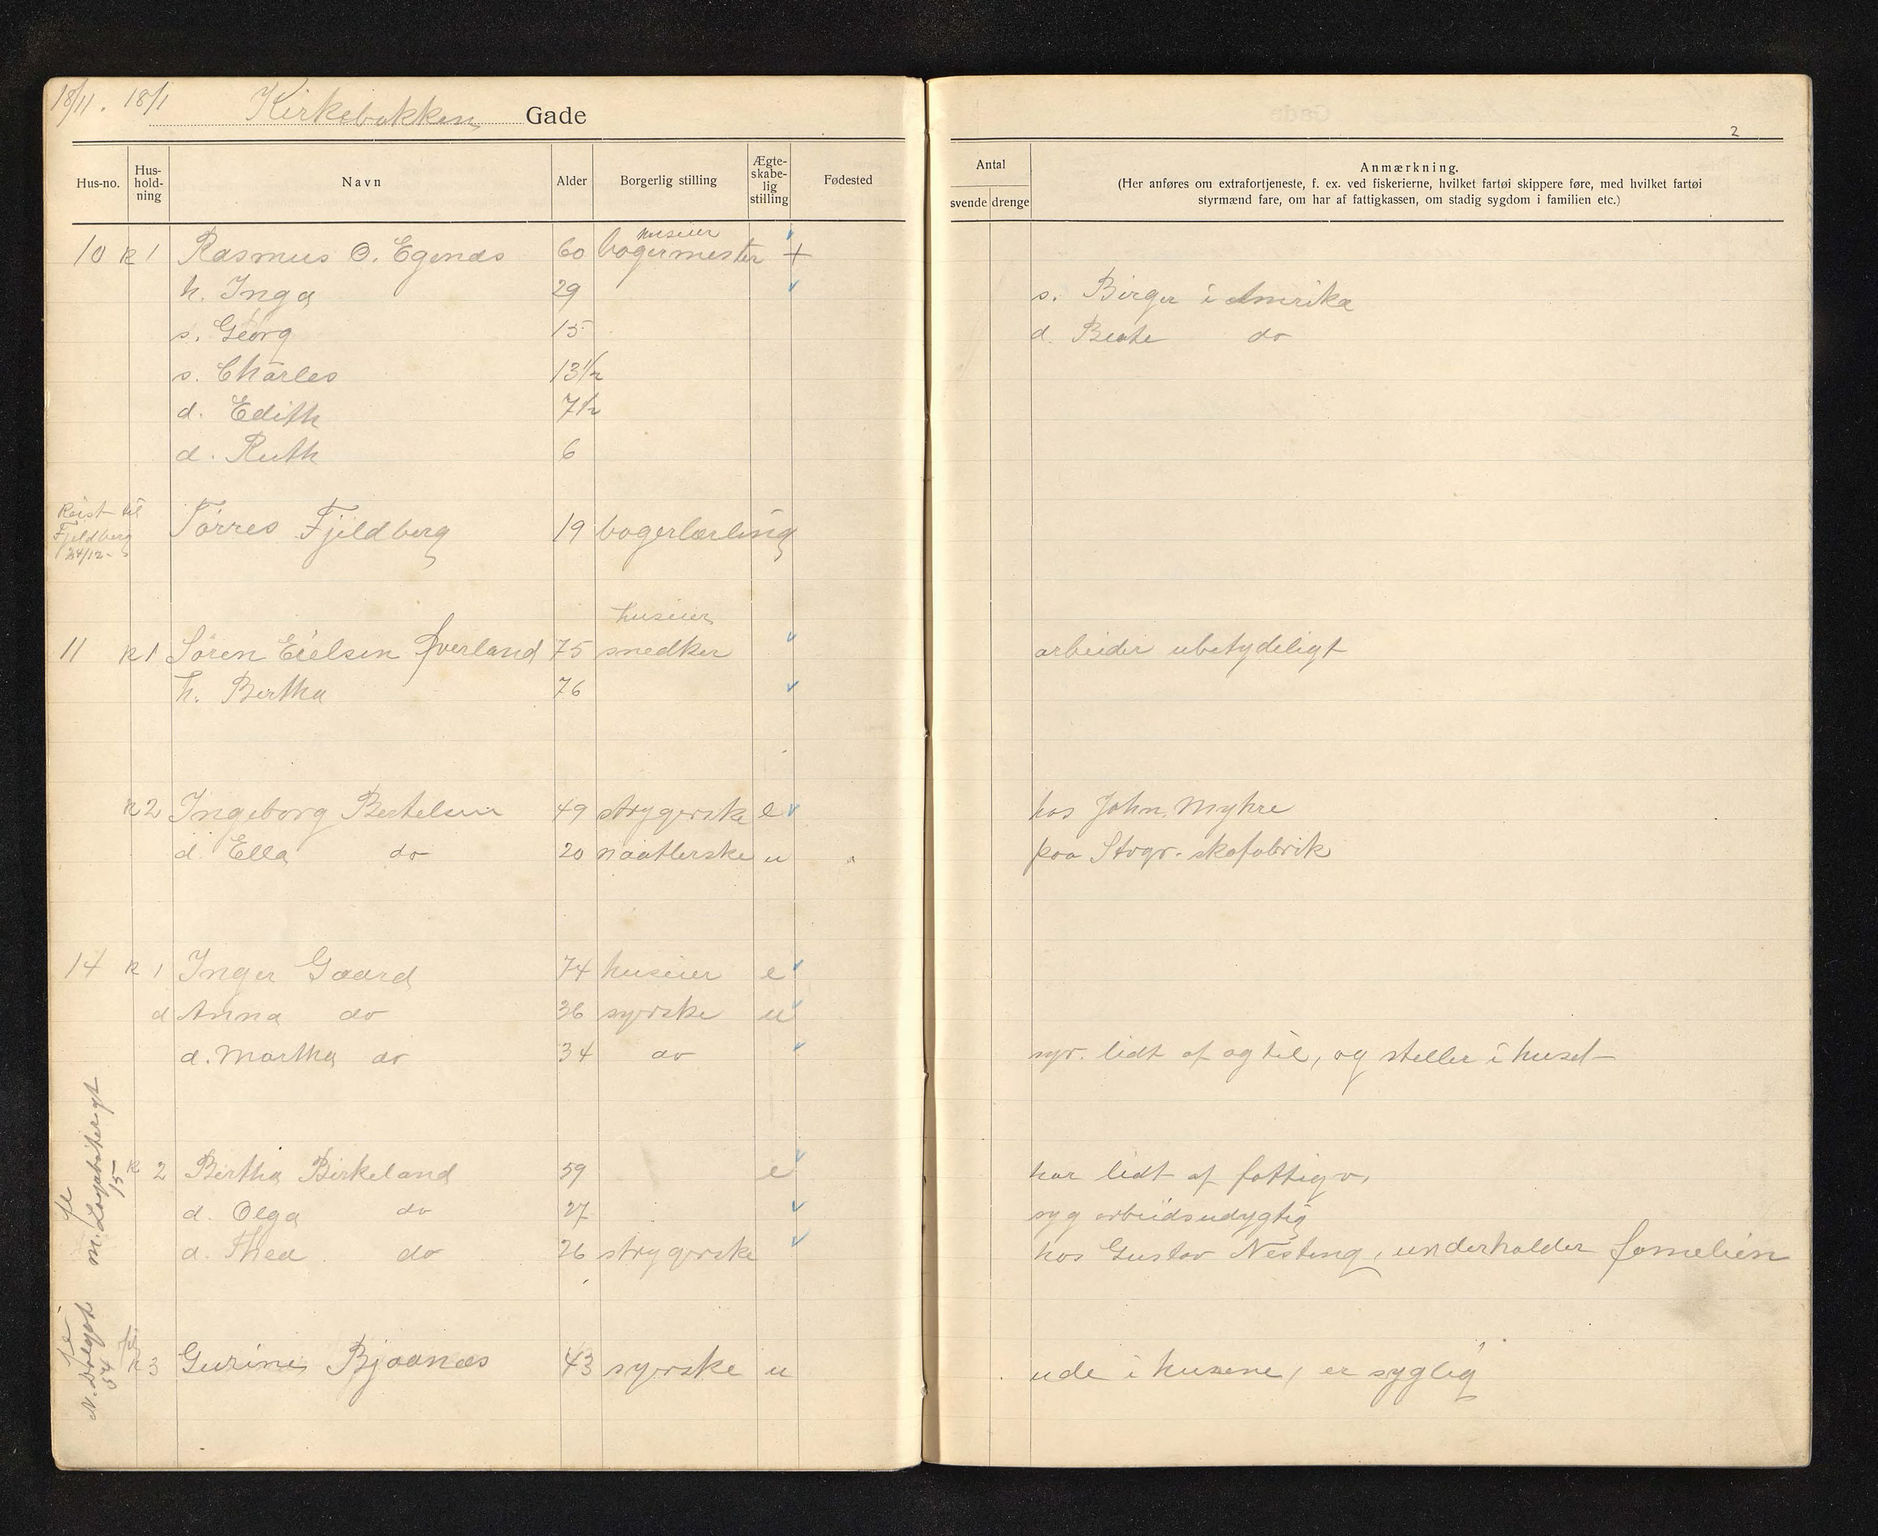 18/11. 18/1 Kirkebakken Gade
2
Hus-no. Hus-hold-ning Navn Alder Borgerlig stilling Ægte-skabe-lig stilling Fødested Antal svende drenge Anmærkning.
(Her anføres om extrafortjeneste, f. ex. ved fiskerierne, hvilket fartøi skippere føre, med hvilket fartøi
styrmænd fare, om har af fattigkassen, om stadig sygdom i familien etc.)
huseier
10 k 1 Rasmus O. Egenæs 60 bagermester +
h. Inga 29 s. Birger i Amerika
s. Georg 15 d. Beate do
s. Charles 13 1/2
d. Edith 7 1/2
d. Ruth 6
Reist til Fjeldberg 24/12- Tørres Fjeldberg 19 bagerlærling
huseier
11 k 1 Søren Eielsen Øverland 75 snedker arbeider ubetydeligt
h. Bertha 76
k 2 Ingeborg Bertelsen 49 strygerske e hos John Myhre
d. Ella do 20 naatlerske u paa Stvgr. skofabrik
14 k 1 Inger Gaard 74 huseier e
d Anna do 36 syerske u
d. Martha do 34 do syr lidt af og til, og steller i huset
k 2 Bertha Birkeland 59 e har lidt af fattigv.
d. Olga do 27 syg arbeidsudygtig
d. Thea do 26 strygerske hos Gustav Nesting, underholder familien
fl m. 15
k 3 Gurine Bjaanæs 43 syerske u ude i husene, er syglig
fl N. 54